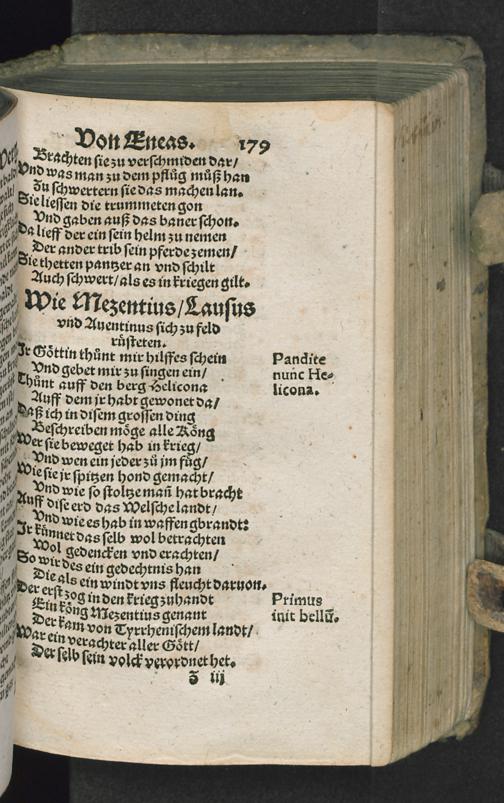 Von Æneas. 179
Brachten sie zu verschmiden dar/
Vnd was man zu dem pflůg můß han
Zu schwertern sie das machen lan.
Sie liessen die trummeten gon
Vnd gaben auß das baner schon.
Da lieff der ein sein helm zu nemen
Der ander trib sein pferde zemen/
Sie thetten pantzer an vnd schilt
Auch schwert/ als es in kriegen gilt.
Wie Mezentius/ Lausus
vnd Auentinus sich zu feld
rüsteten.
Ir Göttin thünt mir hilffes schein
Vnd gebet mir zu singen ein/
Thünt auff den berg Helicona
Auff dem jr habt gewonet da/
Daß ich in disem grossen ding
Beschreiben möge alle Köng
Wer sie beweget hab in krieg/
Vnd wen ein jeder zů jm füg/
Wie sie jr spitzen hond gemacht/
Vnd wie so stoltze mañ hat bracht
Auff dise erd das Welsche landt/
Vnd wie es hab in waffen gbrandt:
Ir künnet das selb wol betrachten
Wol gedencken vnd erachten/
So wir des ein gedechtnis han
Die als ein windt vns fleucht daruon.
Der erst zog in den krieg zuhandt
Ein köng Mezentius genant
Der kam von Tyrrhenischem landt/
War ein verachter aller Gött/
Der selb sein volck verordnet het.
Z iij
Pandite
nunc He-
licona.
Primus
init bellū.